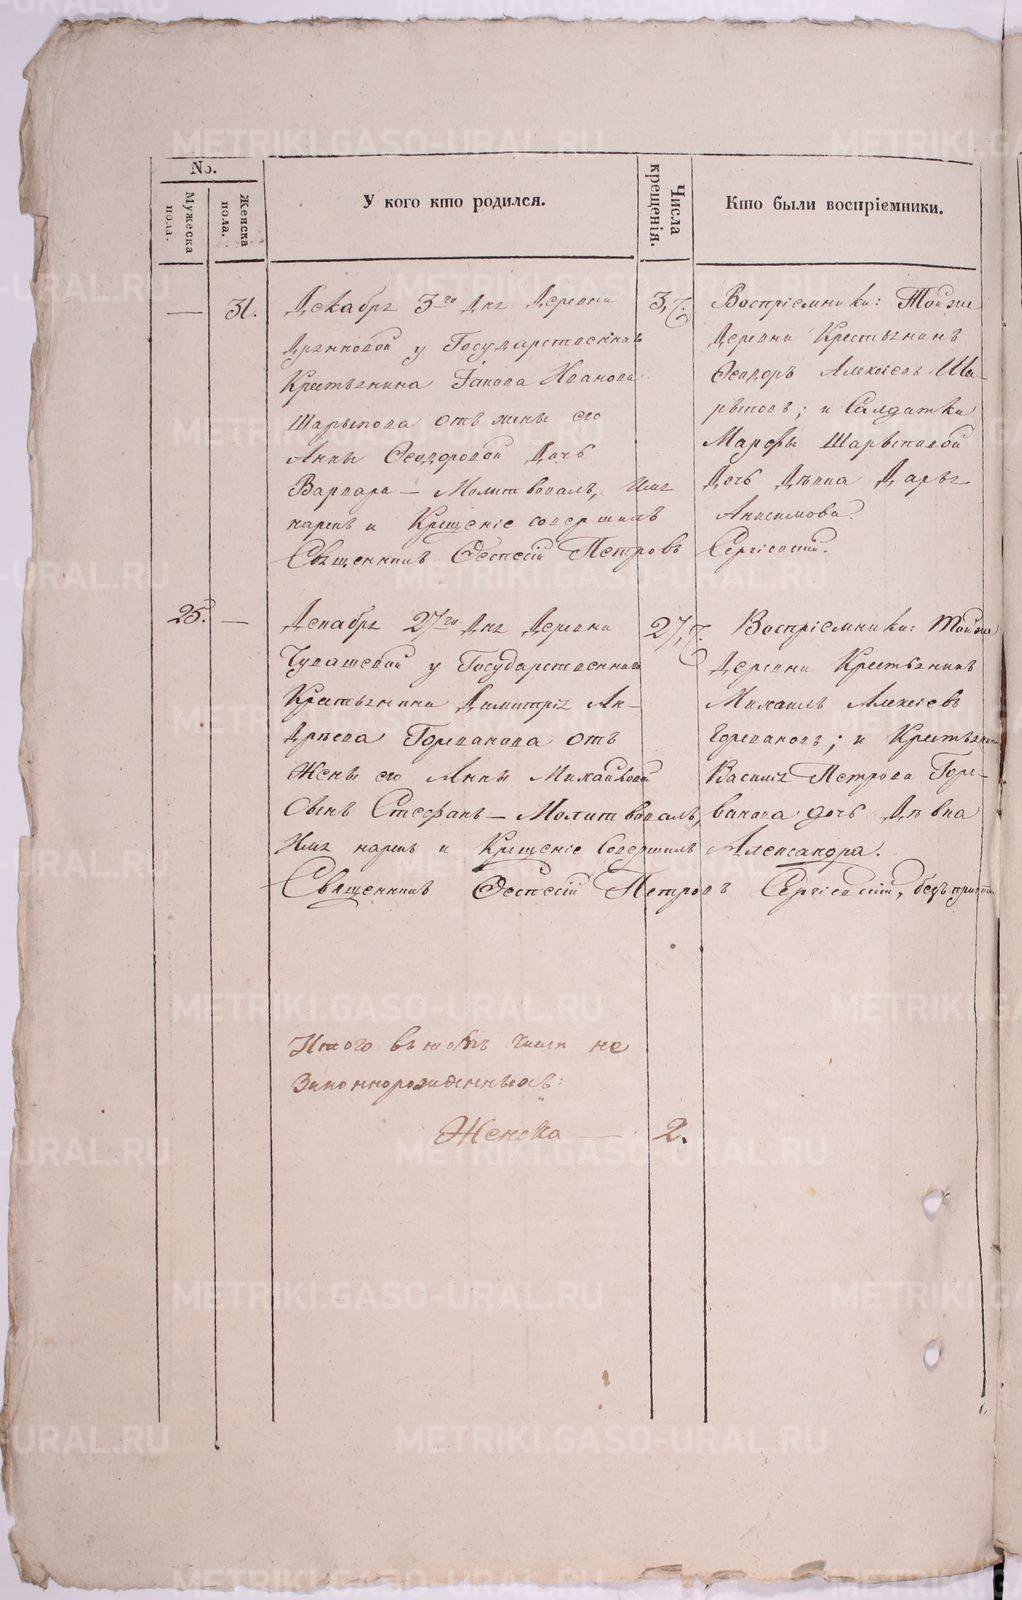 №.
Мужеска пола.
Женска пола.
У кого кто родился.
Числа крещенія.
Кто были воспріемники.
— 31.
Декабря 3го дня Деревни
у Государственнаго
Крестьянина Іакова Иванова
Шарыпова отъ жены его
Анны Ѳеодоровой Дочь
Варвара — Молитвовалъ, Имя
нарекъ и Крещеніе совершилъ
Священникъ Петровъ
3,
Воспріемники: Тойже
Деревни Крестьянинъ
Ѳеодоръ Алексѣевъ Ша-
рыповъ; и Салдатки
Марѳы Шарыповой
Дочь Дѣвка Дарья
Анисимова.
Сергіевскій.
25. —
Декабря 27го Дня Деревни
Чувашевой у Государственнаго
Крестьянина Димитрія Ан-
дрѣева Горванова отъ
Жены его Анны Михайловой
Сынъ Стефанъ — Молитвовалъ,
Имя нарекъ и Крещеніе Совершилъ
Священникъ Петровъ Сергіевскій, безъ
27,
Воспріемники: Тойже
Деревни Крестьянинъ
Михаилъ Алексѣевъ
и Крестьянина
Василія Петрова Горе-
ванова дочь Дѣвка
Александра.
Итого въ томъ числѣ не
Законнорожденныхъ:
Женска — 2.
METRIKI.GASO-URAL.RU